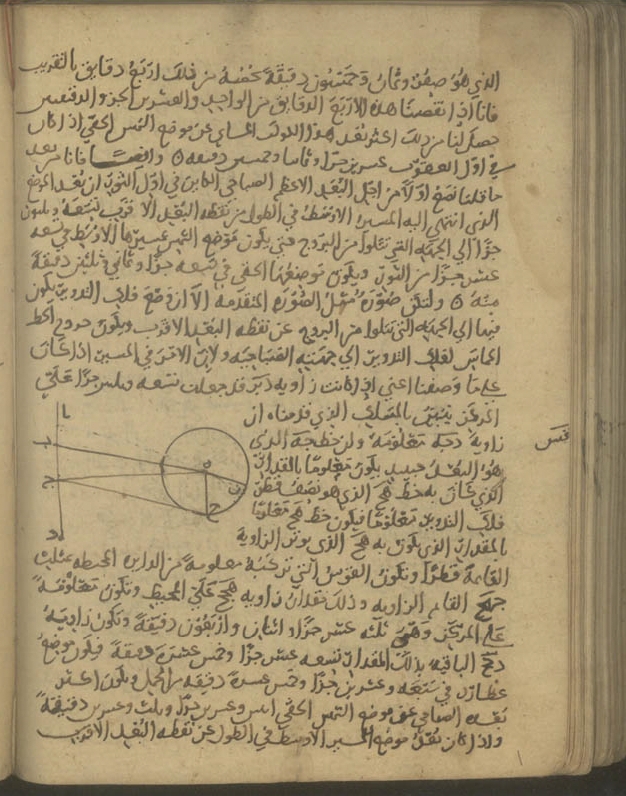 الذي هو نصف وثمان وخمسون دقيقة تخصه من فلك اربع دقايق بالتقريب
فانا اذا نقصنا هذه الاربع الدقايق من الواحد والعشرين الجزو الدقيقتين
حصل لنا من ذلك اكثر بعد هذا الكوكب المساي عن موضع الشمس الخفي اذا كان
في اول العقرب عشرين جزا وثمانيا وخمسين دقيقة وايضا فانا من بعد
ما قلنا نضع اولا من اجل البعد الاعظم الصباحي الكاين في اول الثور ان بعد الموضع
الذي انتهى اليه المسير الاوسط في الطول من نقطة البعد الاقرب تسعة وثلثون
جزا الى الجهة التي تتلوا من البروج حتى يكون موضع الشمس بمسيرها الاوسط في تسعة
عشر جزا من الثور ويكون موضعها الخفي في تسعة جزا وثماني وثلثين دقيقة
منه ولتكن صورة مثل الصورة المتقدمة الا ان وضع فلك التدوير يكون
فيها الى الجهة التي تتلوا من البروج عن نقطة البعد الاقرب ويكون خروج الخط
المماس لفلك التدوير الى جهته الصباحية ولان الامر في المسير اذا كان
على ما وصفنا اعني اذا كانت زاوية د ب ه قد جعلت تسعة وثلثين جزا على
المركز تبين بالمسلك الذي قدمناه ان
زاوية د ج ه معلومة وان خط ج ه الذي
هو البعد حينيذ يكون معلوما بالمقدار
الذي كان به خط ه ح الذي هو نصف قطر
فلك التدوير معلوما فيكون خط ه ح معلوما
بالمقدار الذي يكون به ه ج الذي يوتر الزاوية
القايمة قطرا وتكون القوس التي تركبه معلومة من الدايرة المحيطة بمثلث
ج ه ح القايم الزاوية وذلك مقدار زاوية ه ج ح على المحيط وتكون معلومة
على المركز وهي ثلثة عشر جزا واثنان واربعون دقيقة وتكون زاوية
د ج ح الباقية بذلك المقدار تسعة عشر جزا وخمس عشرة دقيقة فيكون موضع
عطارد في تسعة وعشرين جزا وخمس عشرة دقيقة من الحمل ويكون اكثر
بعده الصباحي عن موضع الشمس الخفي اثنين وعشرين جزا وثلث وعشرين دقيقة
واذا كان بعد موضع المسير الاوسط في الطول عن نقطة البعد الاقرب
ا
ب
ج
د
ه
ح